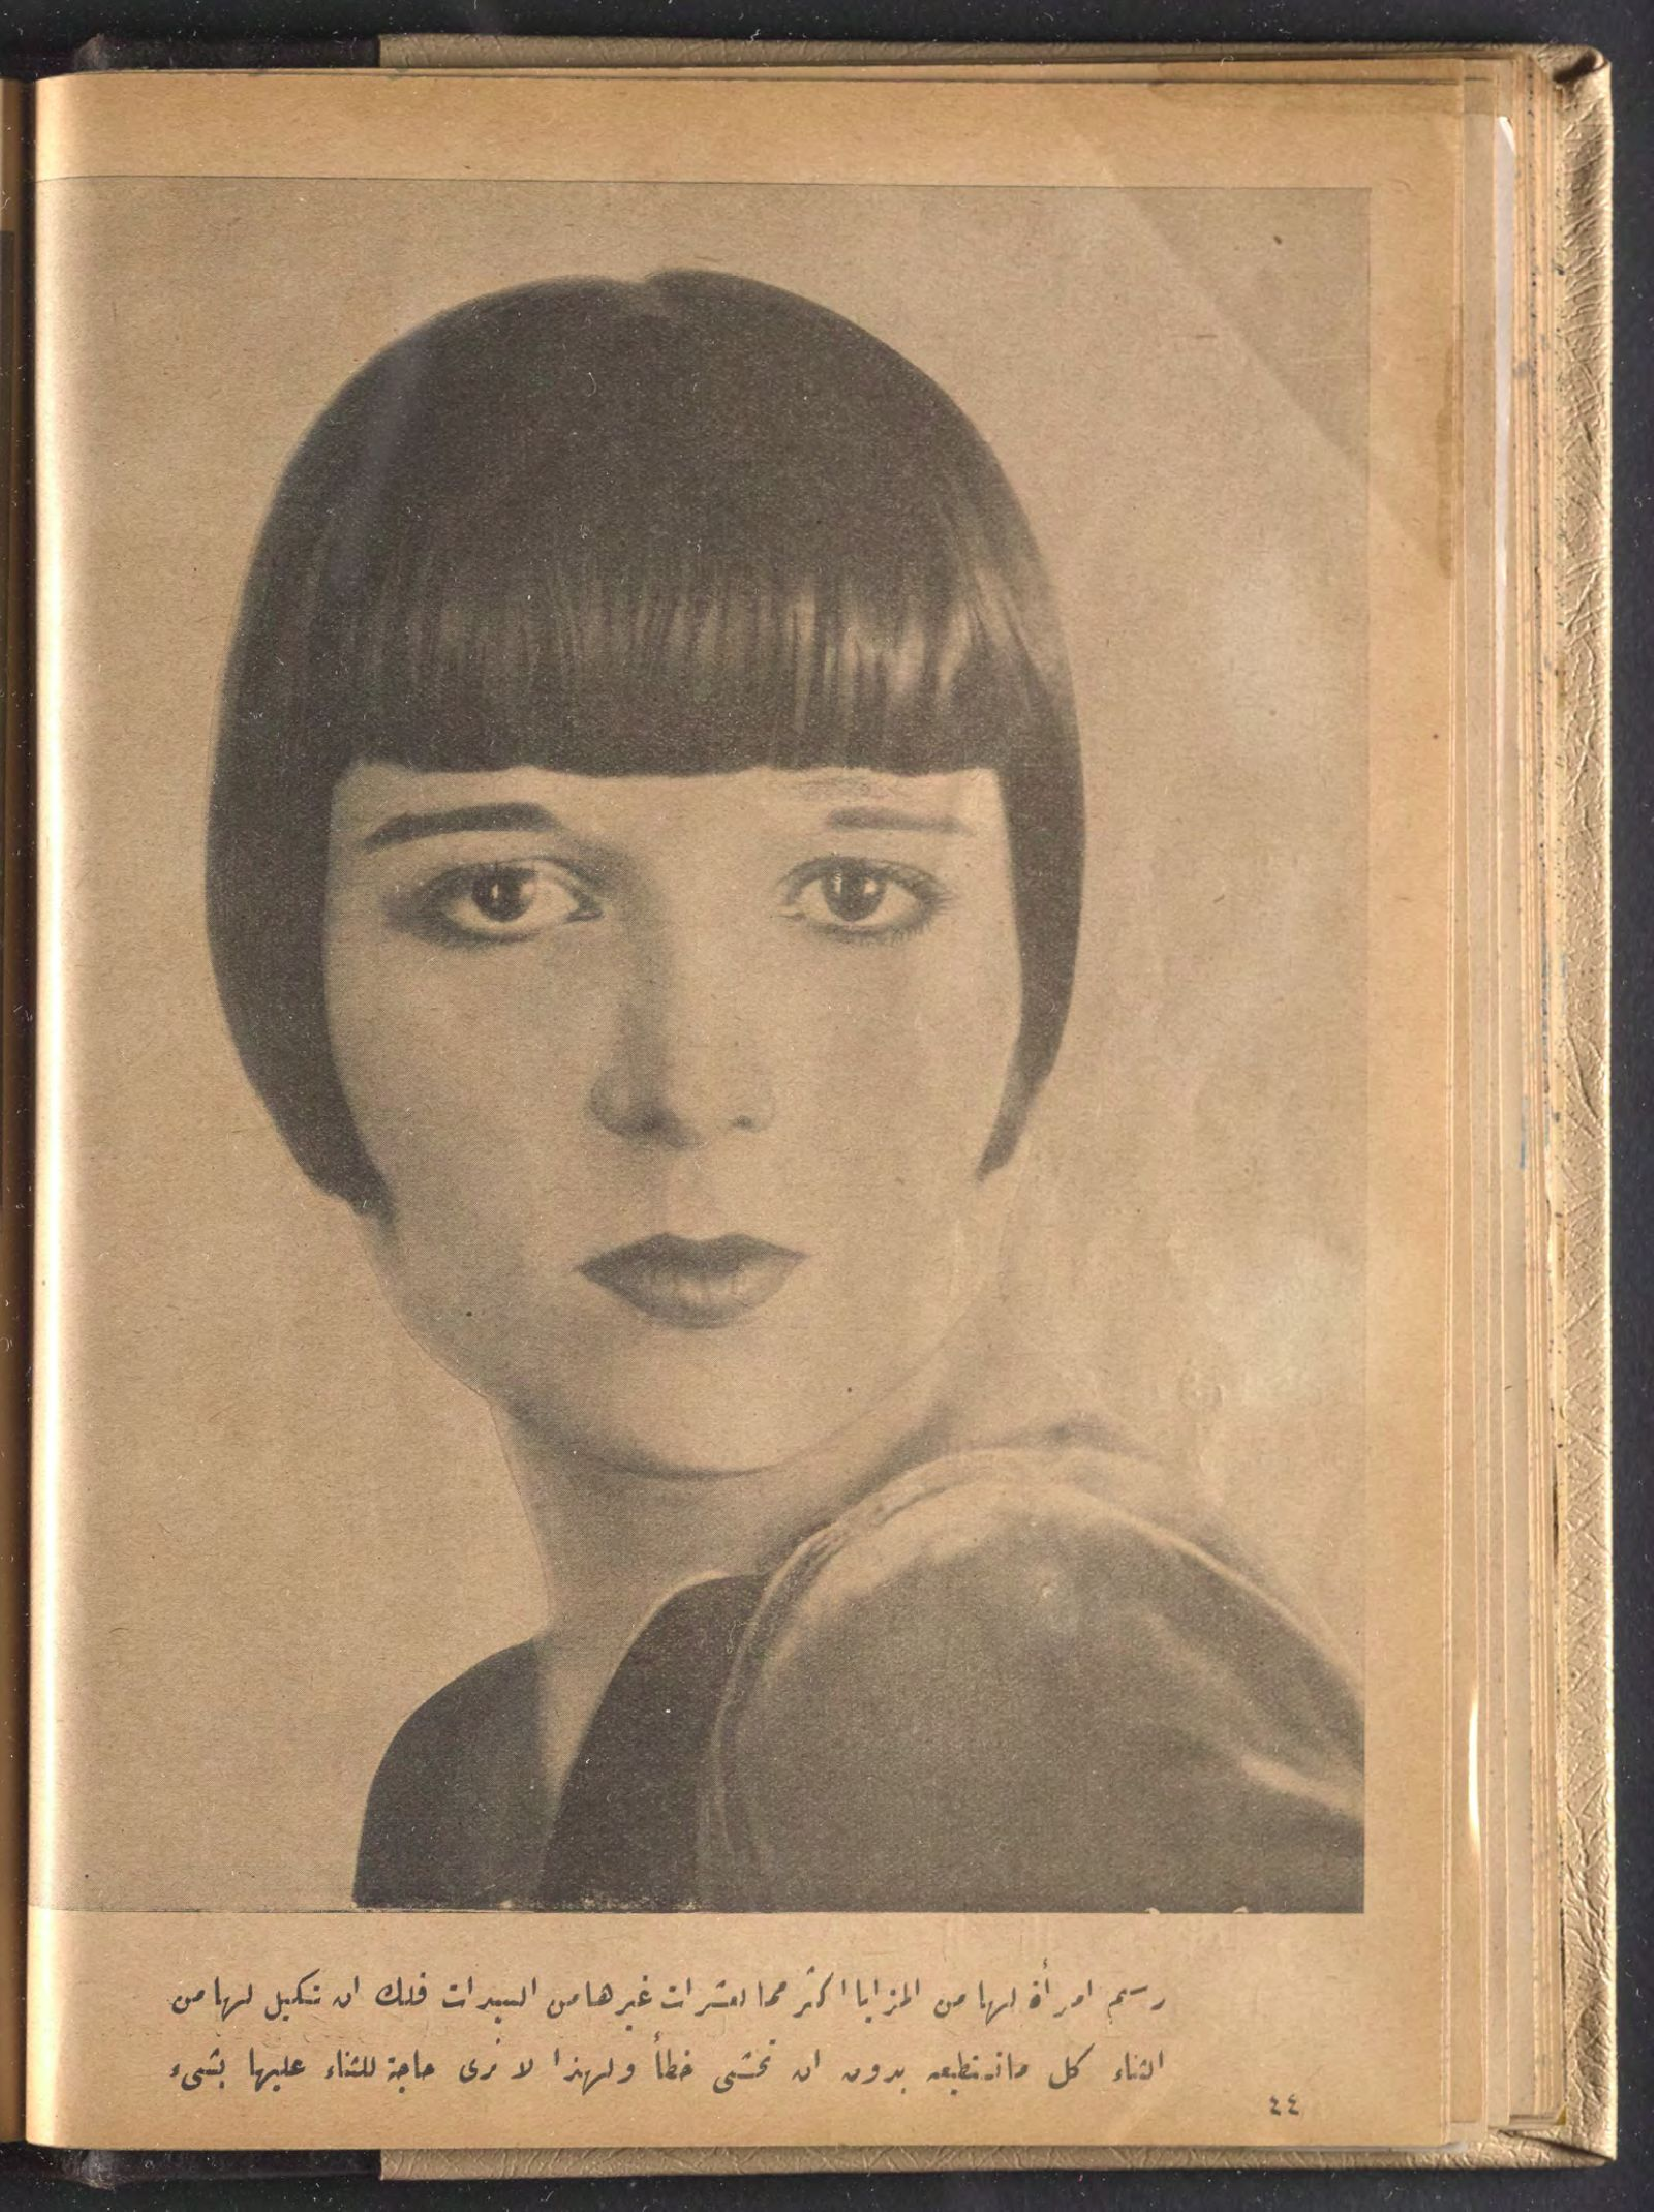 رسم امرأة لها من المزايا اكثر مما لعشرات غيرها من السيدات فلك ان تكيل لها من
الثناء كل ما تستطيعه بدون ان تخشى خطأ ولهذا لا نرى حاجة للثناء عليها بشىء
٤٤